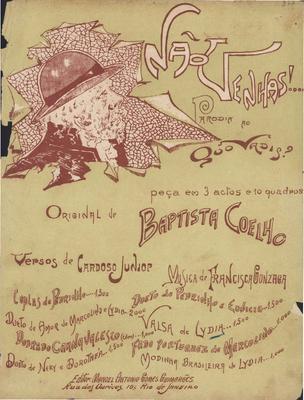 NÃO VENHAS!...
PARODIA AO
QUO VADIS?
peça em 3 actos e 10 quadros
ORIGINAL de BAPTISTA COELHO
Versos de CARDOSO JUNIOR
MUSICA de FRANCISCA GONZAGA
Coplas de 1.500
Dueto de Pedridio e Eunicia 1.500
Dueto de Amor de Marcolino e Lydia 2000
VALSA de LYDIA 1.500
1.000
FADO PORTUGUEZ de MARCOLINO 1.000
Dueto de Nero e DOROTHÉA 1.500
MODINHA BRASILEIRA de LYDIA 1.000
Editor MANOEL ANTONIO GOMES GUIMARÃES
Rua dos Ourives 10, Rio de Janeiro